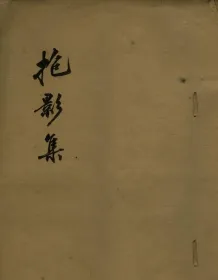 抱影集